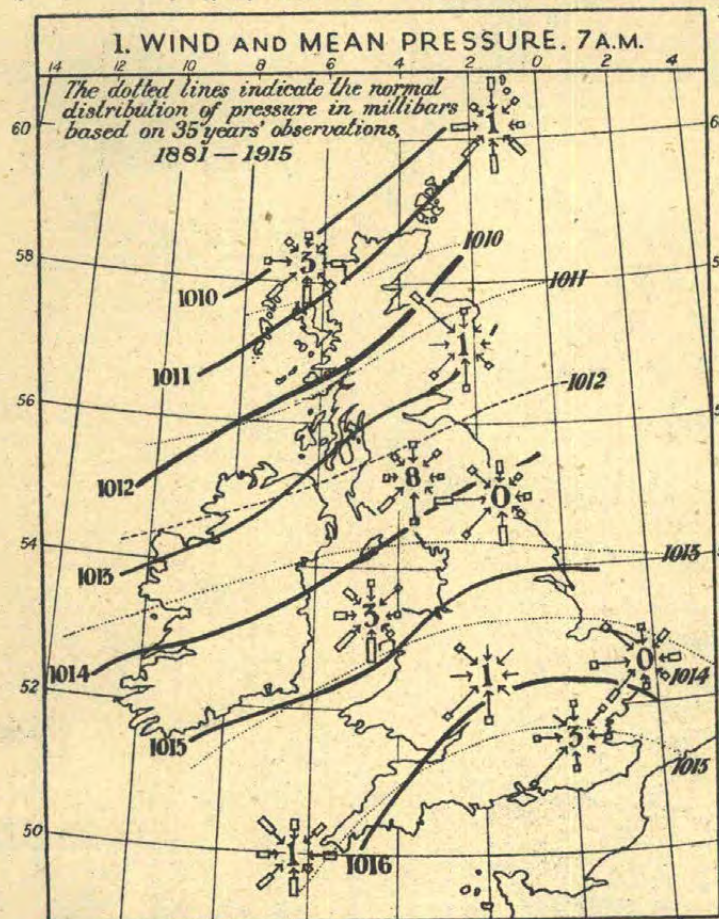 1. WIND AND MEAN PRESSURE. 7 A.M.
14 12 10 8 6 4 2 0 2 4
The dotted lines indicate the normal
distribution of pressure in millibars
based on 35 years' observations,
1881 — 1915
60
1
58
3
1010
1010
1011
1011
1
56
1012
1012
8
0
54
1013
1013
3
0
1014
1014
52
1
1015
3
1015
50
1
1016
14 12 10 8 6 4 2 0 2